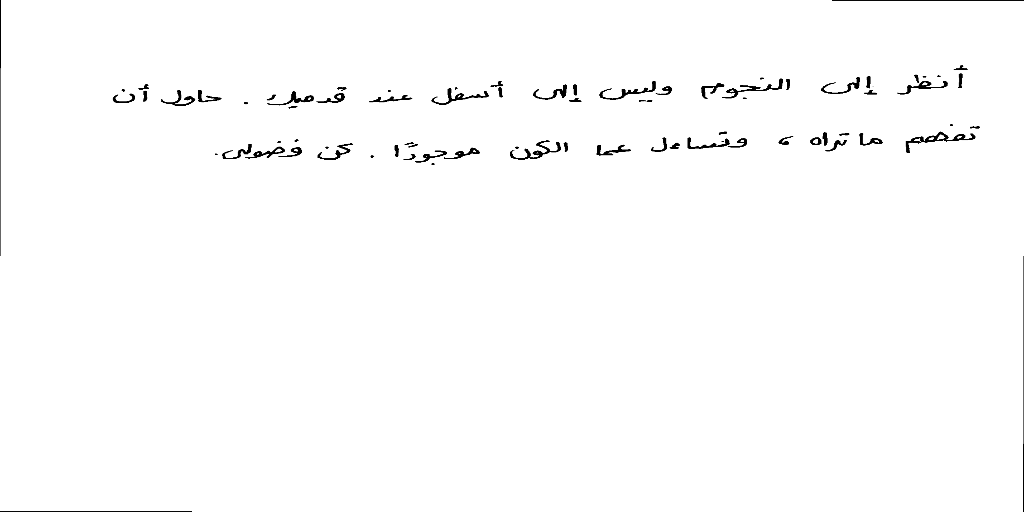 أنظر إلى النجوم وليس إلى أسفل عند قدميك . حاول أن
تفهم ما تراه ، وتساءل عما الكون موجودًا . كن فضولي.